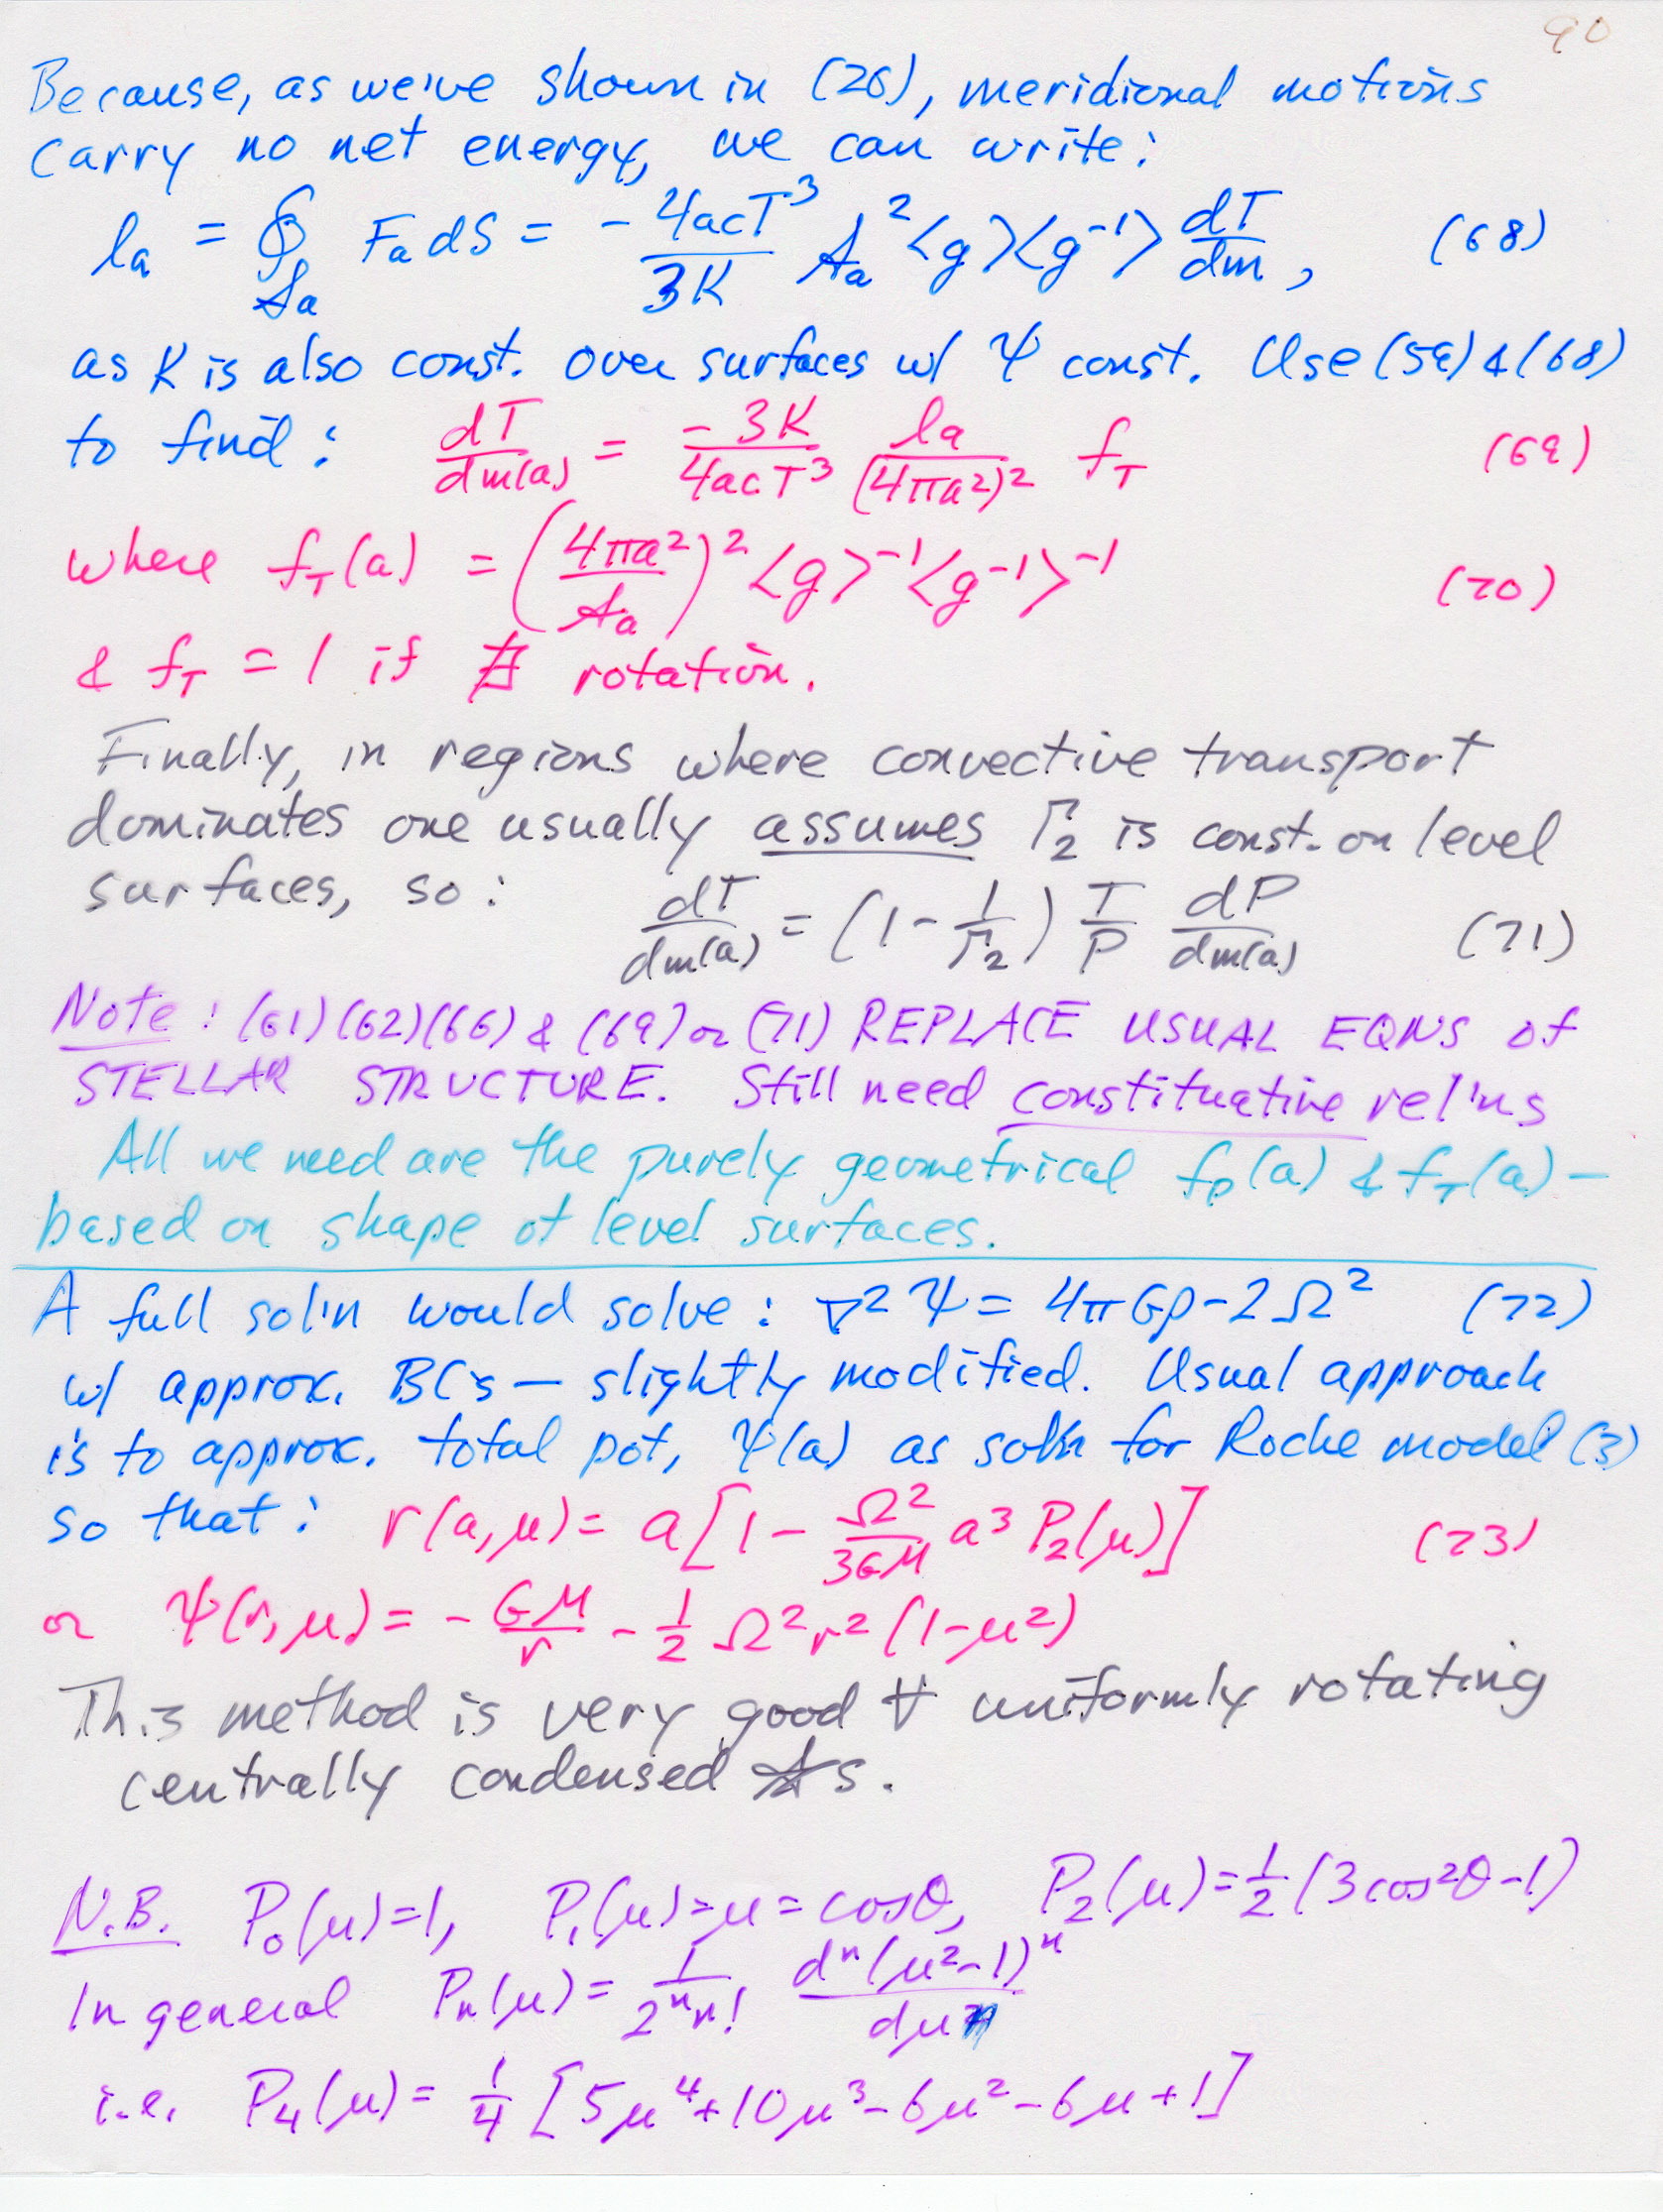 90
Because, as we've shown in (26), meridional motions
carry no net energy, we can write:
lₐ = ∮_{𝒮ₐ} Fₐ dS = - 4acT³/3K 𝒮ₐ² <g><g⁻¹> dT/dm, (68)
as K is also const. over surfaces w/ Ψ const. Use (59) & (68)
to find: dT/dm(a) = -3K/4acT³ lₐ/(4πa²)² f_T (69)
where f_T(a) = (4πa²/𝒮ₐ)² <g>⁻¹<g⁻¹>⁻¹ (70)
& f_T = 1 if ∄ rotation.
Finally, in regions where convective transport
dominates one usually assumes Γ₂ is const. on level
surfaces, so: dT/dm(a) = (1 - 1/Γ₂) T/P dP/dm(a) (71)
Note: (61)(62)(66) & (69) or (71) REPLACE USUAL EQNS of
STELLAR STRUCTURE. Still need constituative rel'ns
All we need are the purely geometrical f_P(a) & f_T(a) —
based on shape of level surfaces.
A full sol'n would solve: ∇²Ψ = 4πGρ - 2Ω² (72)
w/ approx. BC's — slightly modified. Usual approach
is to approx. total pot, Ψ(a) as soln for Roche model (3)
so that: r(a,μ) = a[1 - Ω²/3GM a³ P₂(μ)] (73)
or Ψ(r,μ) = - GM/r - 1/2 Ω²r²(1-μ²)
This method is very good ∀ uniformly rotating
centrally condensed ☆s.
N.B. P₀(μ)=1, P₁(μ)=μ=cosθ, P₂(μ)=1/2(3cos²θ-1)
In general Pₙ(μ) = 1/2ⁿn! dⁿ(μ²-1)ⁿ/dμⁿ
i.e. P₄(μ) = 1/4 [5μ⁴+10μ³-6μ²-6μ+1]